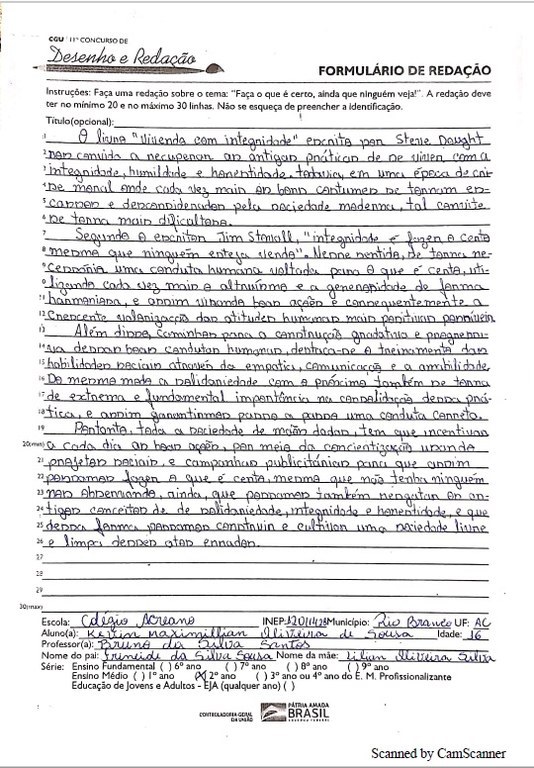 CGU 11º CONCURSO DE
Desenho e Redação
FORMULÁRIO DE REDAÇÃO
Instruções: Faça uma redação sobre o tema: "Faça o que é certo, ainda que ninguém veja!". A redação deve
ter no mínimo 20 e no máximo 30 linhas. Não se esqueça de preencher a identificação.
Título(opcional):
1 O livro "Vivendo com integridade" escrito por Steve
2 nos convida a recuperar as antigas práticas de se viver com a
3 integridade, humildade e honestidade, todavia, em uma época de cri-
4 se moral onde cada vez mais os bons costumes se tornam es-
5 cassos e desconsiderados pela sociedade moderna, tal convite
6 se torna mais dificultoso.
7 Segundo o escritor Jim Stovall, "integridade é fazer o certo
8 mesmo que ninguém esteja vendo". Nesse sentido, se torna ne-
9 cessária uma conduta humana voltada para o que é certo, uti-
lizando cada vez mais o altruísmo e a generosidade de forma
11 harmoniosa, e assim visando boas ações e consequentemente a
12 crescente valorização das atitudes humanas mais positivas possíveis
13 Além disso, caminhar para a construção gradativa e progressi-
14 va dessas boas condutas humanas, destaca-se o treinamento das
15 habilidades sociais através da empatia, comunicação e a amabilidade.
16 Do mesmo modo a solidariedade com o próximo também se torna
17 de extrema e fundamental importância na consolidação dessa prá-
18 tica, e assim garantirmos passo a passo uma conduta correta.
19 Portanto, toda a sociedade de mãos dadas, tem que incentivar
20(min) a cada dia as boas ações, por meio da concientização usando
21 projetos sociais, e campanhas publicitárias para que assim
22 possamos fazer o que é certo, mesmo que não tenha ninguém
23 nos observando, ainda, que possamos também resgatar os an-
24 tigos conceitos de de solidariedade, integridade e honestidade, e que
25 dessa forma possamos construir e cultivar uma sociedade livre
26 e limpa desses atos errados.
27
28
29
30(max)
Escola: Colégio Acreano INEP: Município: Rio Branco UF: AC
Aluno(a): Kevin Maximillian Oliveira de Sousa Idade: 16
Professor(a): Bruno da Silva Santos
Nome do pai: da Silva Sousa Nome da mãe: Lilian Oliveira Silva
Série: Ensino Fundamental ( ) 6º ano ( ) 7º ano ( ) 8º ano ( ) 9º ano
Ensino Médio ( ) 1º ano (X) 2º ano ( ) 3º ano ou 4º ano do E. M. Profissionalizante
Educação de Jovens e Adultos - EJA (qualquer ano) ( )
CONTROLADORIA-GERAL DA UNIÃO
PÁTRIA AMADA
BRASIL
GOVERNO FEDERAL
Scanned by CamScanner